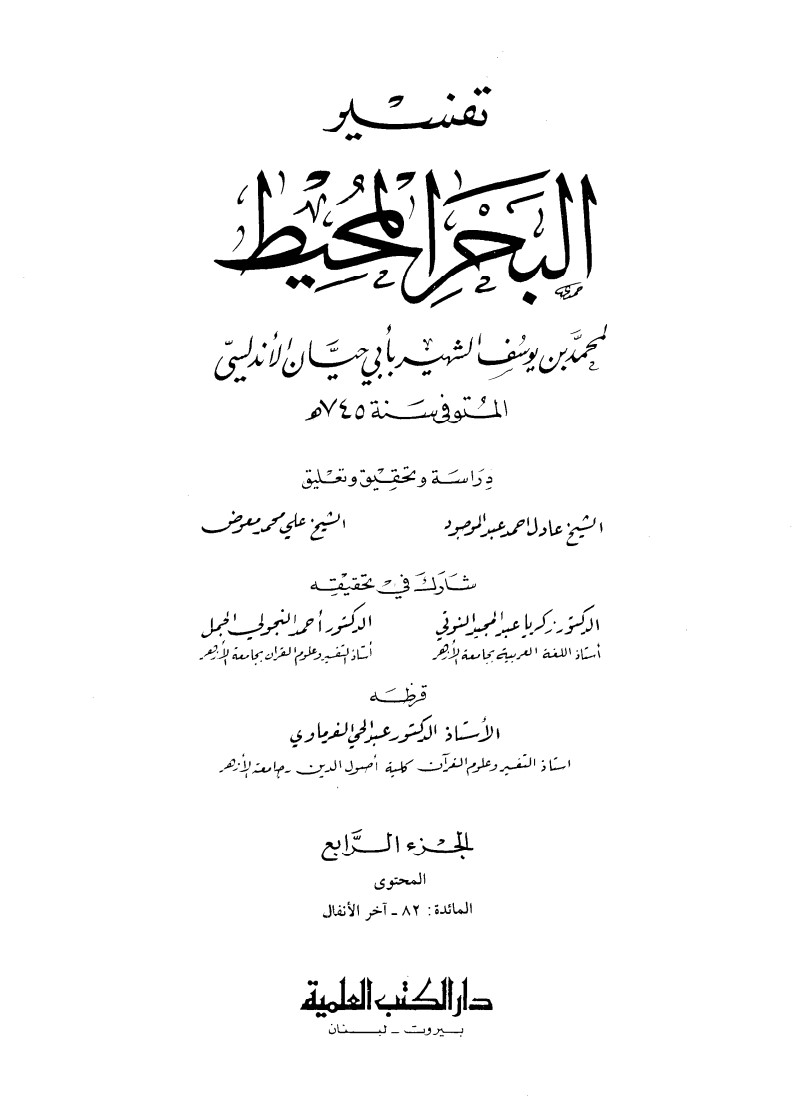 تفسير
البَحْرِ المُحِيْط
لمحمَّد بن يوسُف الشهير بأبي حيَّان الأندلسيّ
المتُوفى سَنة ٧٤٥هـ
دِرَاسَة وتحقِيْق وتعْليق
الشيخ عادل احمد عبد الموجود الشيخ علي محمد معوض
شَارَكَ فيْ تحقيْقِه
الدكتور زكريا عبد المجيد النوقي الدكتور أحمد النجولي الجمل
أستاذ اللغة العربية بجامعة الأزهر أستاذ التفسير وعلوم القرآن بجامعة الأزهر
قرظه
الأستاذ الدكتور عبد الحي الفرماوي
استاذ التفسير وعلوم القرآن كلية أصول الدين _ جامعة الأزهر
الجزء الرَّابع
المحتوى
المائدة: ٨٢ ـ آخر الأنفال
دار الكتب العلمية
بيروت ـ لبنان